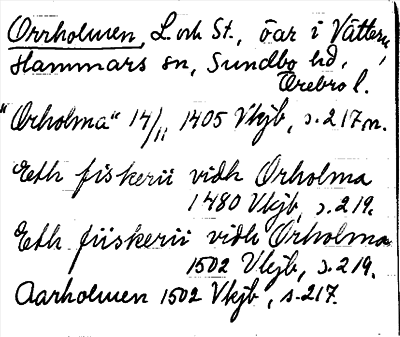 Orrholmen, L. och St., öar i Vättern,
Hammars sn, Sundbo hd,
Örebro l.
"Orholma" 14/11 1405 Vkjb, s. 217, n.
Eth fiskerii vidh Orholma
1480 Vkjb, s. 219.
Eth fiiskerii vidh Orholma
1502 Vkjb, s. 219.
Aarholmen 1502 Vkjb, s. 217.